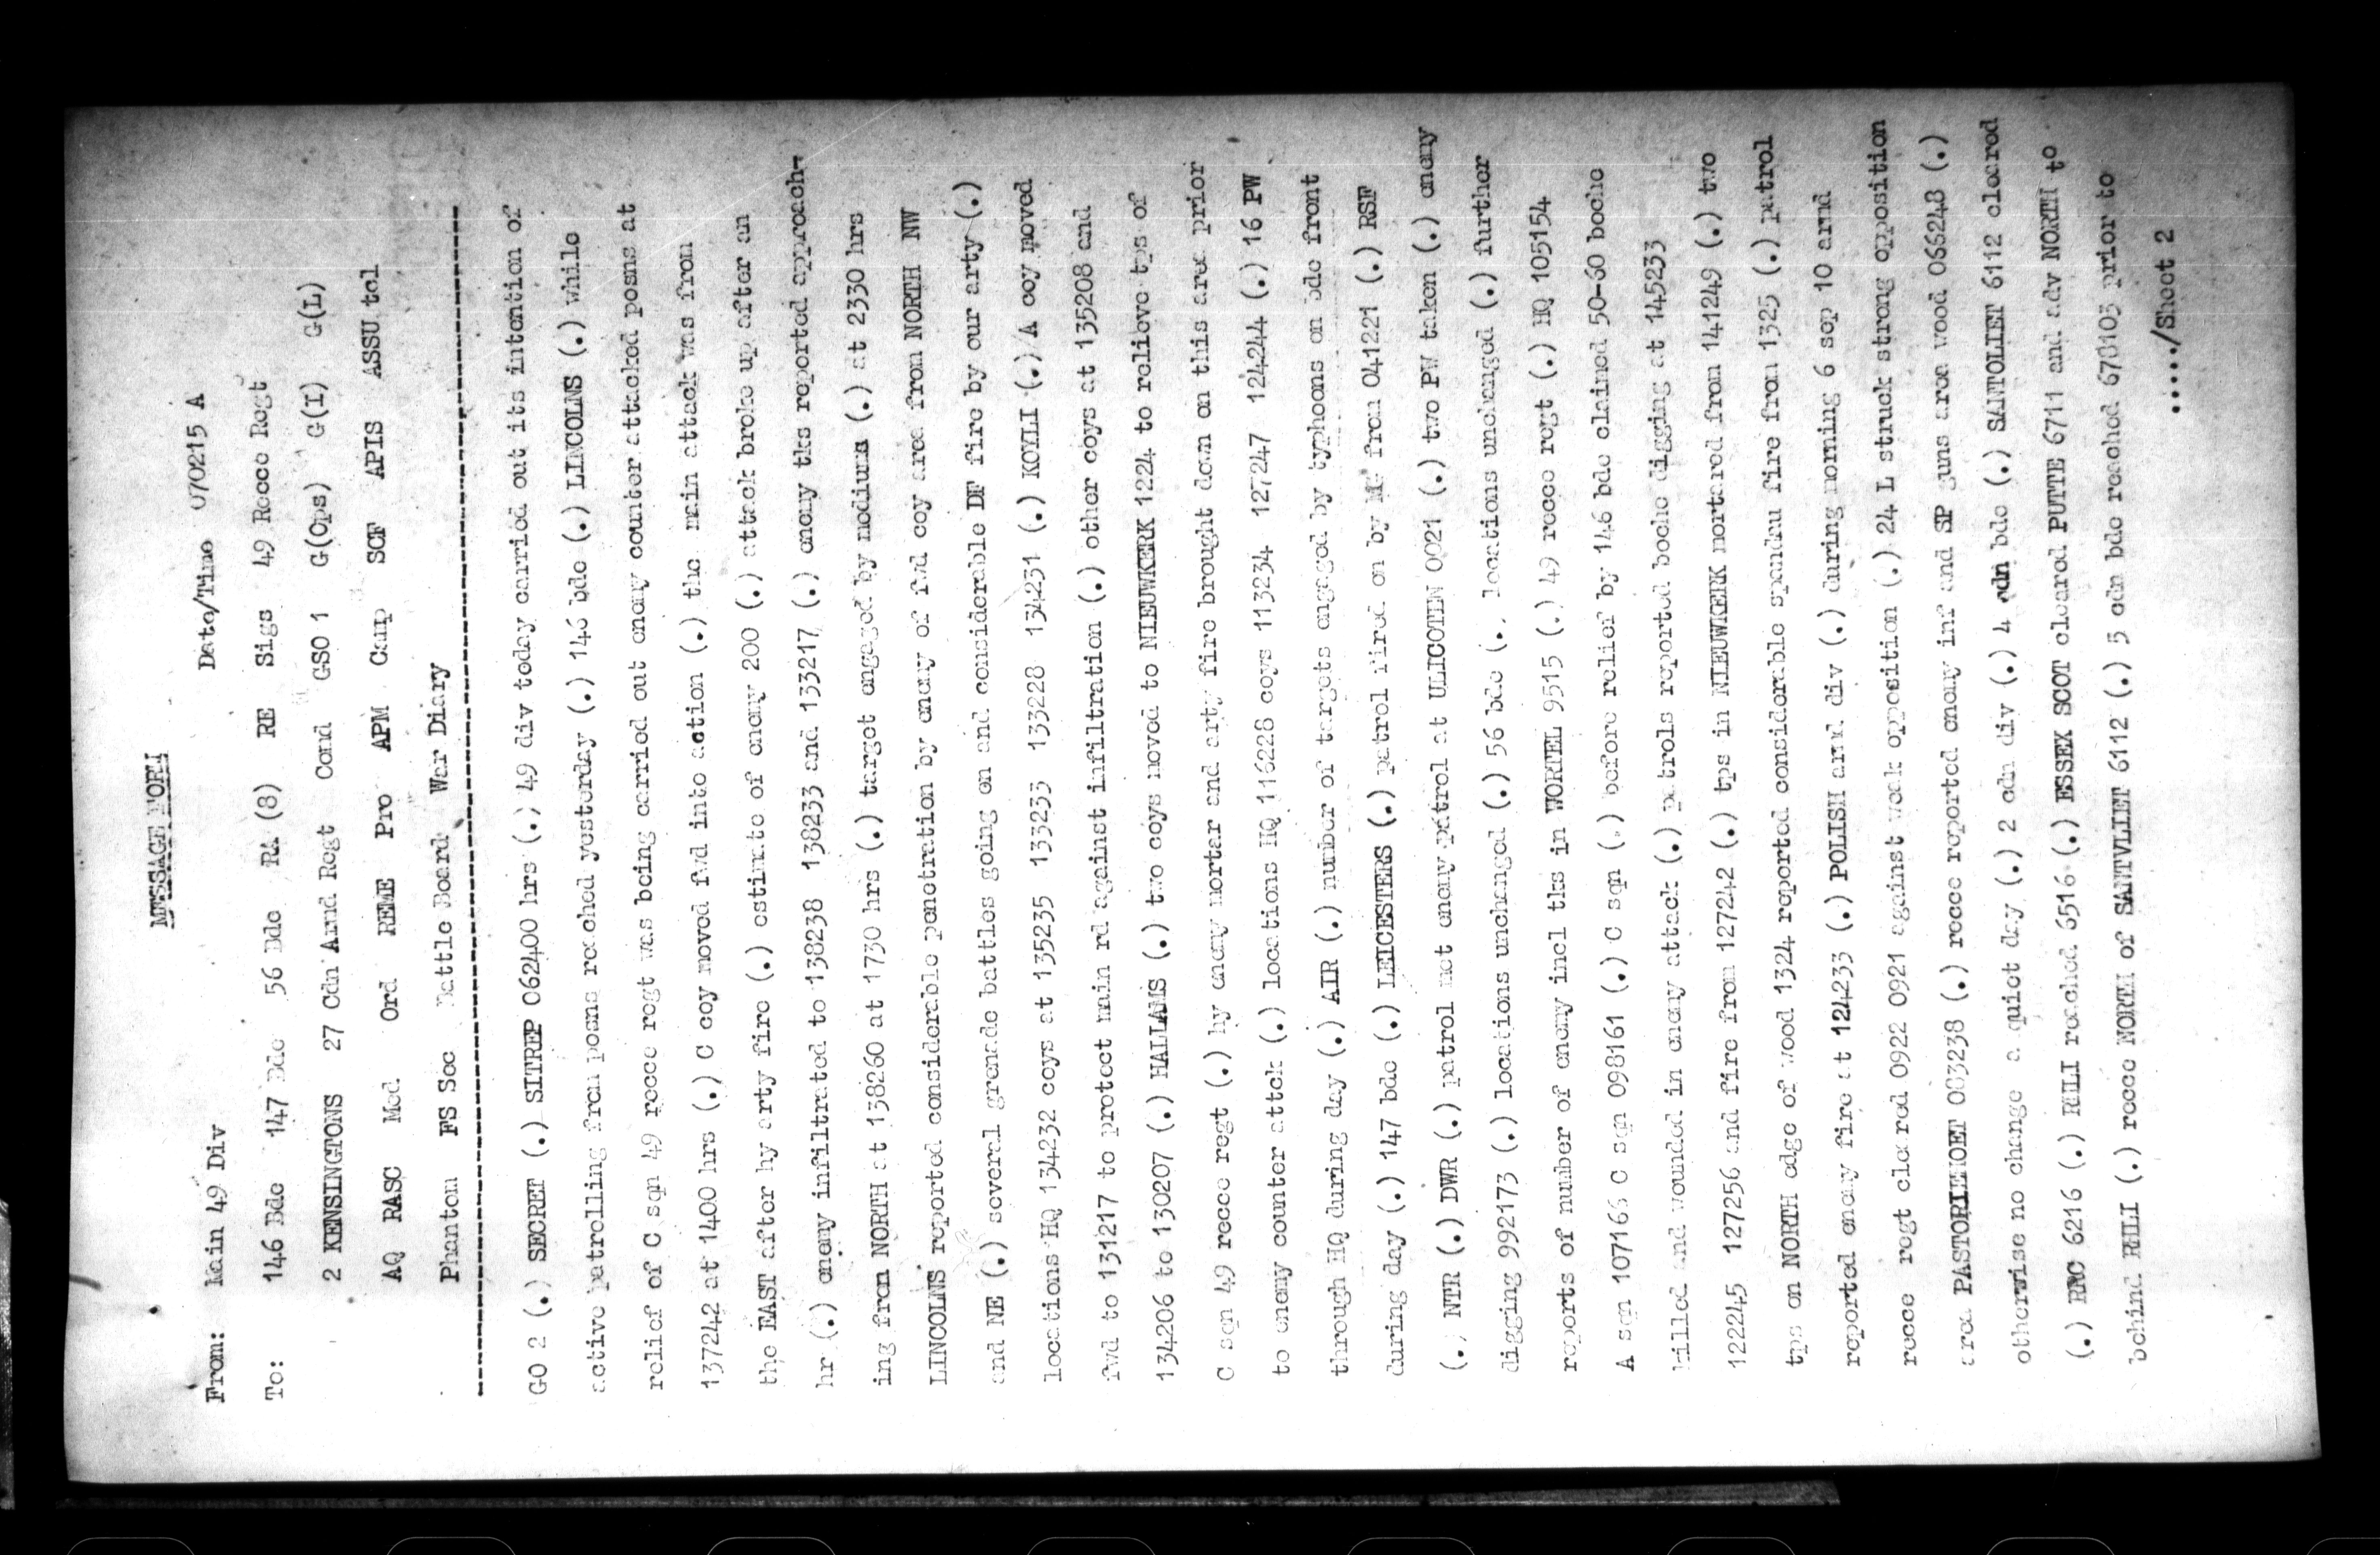 MESSAGE FORM
From: Main 49 Div Date/Time 070215 A
To: 146 Bde 147 Bde 56 Bde RA (8) RE Sigs 49 Recce Regt
2 KENSINGTONS 27 Cdn Armd Regt Cond GSO 1 G(Ops) G(I) G(L)
AQ RASC Med Ord REME Pro APM Camp SCF APIS ASSU tel
Phantom FS Sec Battle Board War Diary
GO 2 (.) SECRET (.) SITREP 062400 hrs (.) 49 div today carried out its intention of
active patrolling from posns reached yesterday (.) 146 bde (.) LINCOLNS (.) while
relief of C sqn 49 recce regt was being carried out enemy counter attacked posns at
137242 at 1400 hrs (.) C coy moved fwd into action (.) the main attack was from
the EAST after hy arty fire (.) estimate of enemy 200 (.) attack broke up after an
hr (.) enemy infiltrated to 138238 138233 and 133217 (.) enemy tks reported approach-
ing from NORTH at 138260 at 1730 hrs (.) target engaged by mediums (.) at 2330 hrs
LINCOLNS reported considerable penetration by enemy of fwd coy area from NORTH NW
and NE (.) several grenade battles going on and considerable DF fire by our arty (.)
locations HQ 134232 coys at 135235 133233 133228 134231 (.) KOYLI (.) A coy moved
fwd to 131217 to protect main rd against infiltration (.) other coys at 135208 and
134206 to 130207 (.) HALLAMS (.) two coys moved to NIEUWKERK 1224 to relieve tps of
C sqn 49 recce regt (.) hy enemy mortar and arty fire brought down on this area prior
to enemy counter attck (.) locations HQ 116228 coys 113234 127247 124244 (.) 16 PW
through HQ during day (.) AIR (.) number of targets engaged by typhoons on bde front
during day (.) 147 bde (.) LEICESTERS (.) patrol fired on by MG from 041221 (.) RSF
(.) NTR (.) DWR (.) patrol met enemy patrol at ULICOTIN 0021 (.) two PW taken (.) enemy
digging 992173 (.) locations unchanged (.) 56 bde (.) locations unchanged (.) further
reports of number of enemy incl tks in WORTEL 9515 (.) 49 recce regt (.) HQ 105154
A sqn 107166 C sqn 098161 (.) C sqn (.) before relief by 146 bde claimed 50-60 boche
killed and wounded in enemy attack (.) patrols reported boche digging at 145233
122245 127256 and fire from 127242 (.) tps in NIEUWKERK mortared from 141249 (.) two
tps on NORTH edge of wood 1324 reported considerable spandau fire from 1325 (.) patrol
reported enemy fire at 124233 (.) POLISH armd div (.) during morning 6 sep 10 armd
recce regt cleared 0922 0921 against weak opposition (.) 24 L struck strong opposition
area PASTORIEHOET 063238 (.) recce reported enemy inf and SP guns area wood 066248 (.)
otherwise no change a quiet day (.) 2 cdn div (.) 4 cdn bde (.) SANTOLIET 6112 cleared
(.) RRC 6216 (.) RHLI reached 6516 (.) ESSEX SCOT cleared PUTTE 6711 and adv NORTH to
behind RHLI (.) recce NORTH of SANTVLIET 6112 (.) 5 cdn bde reached 670103 prior to
...../Sheet 2